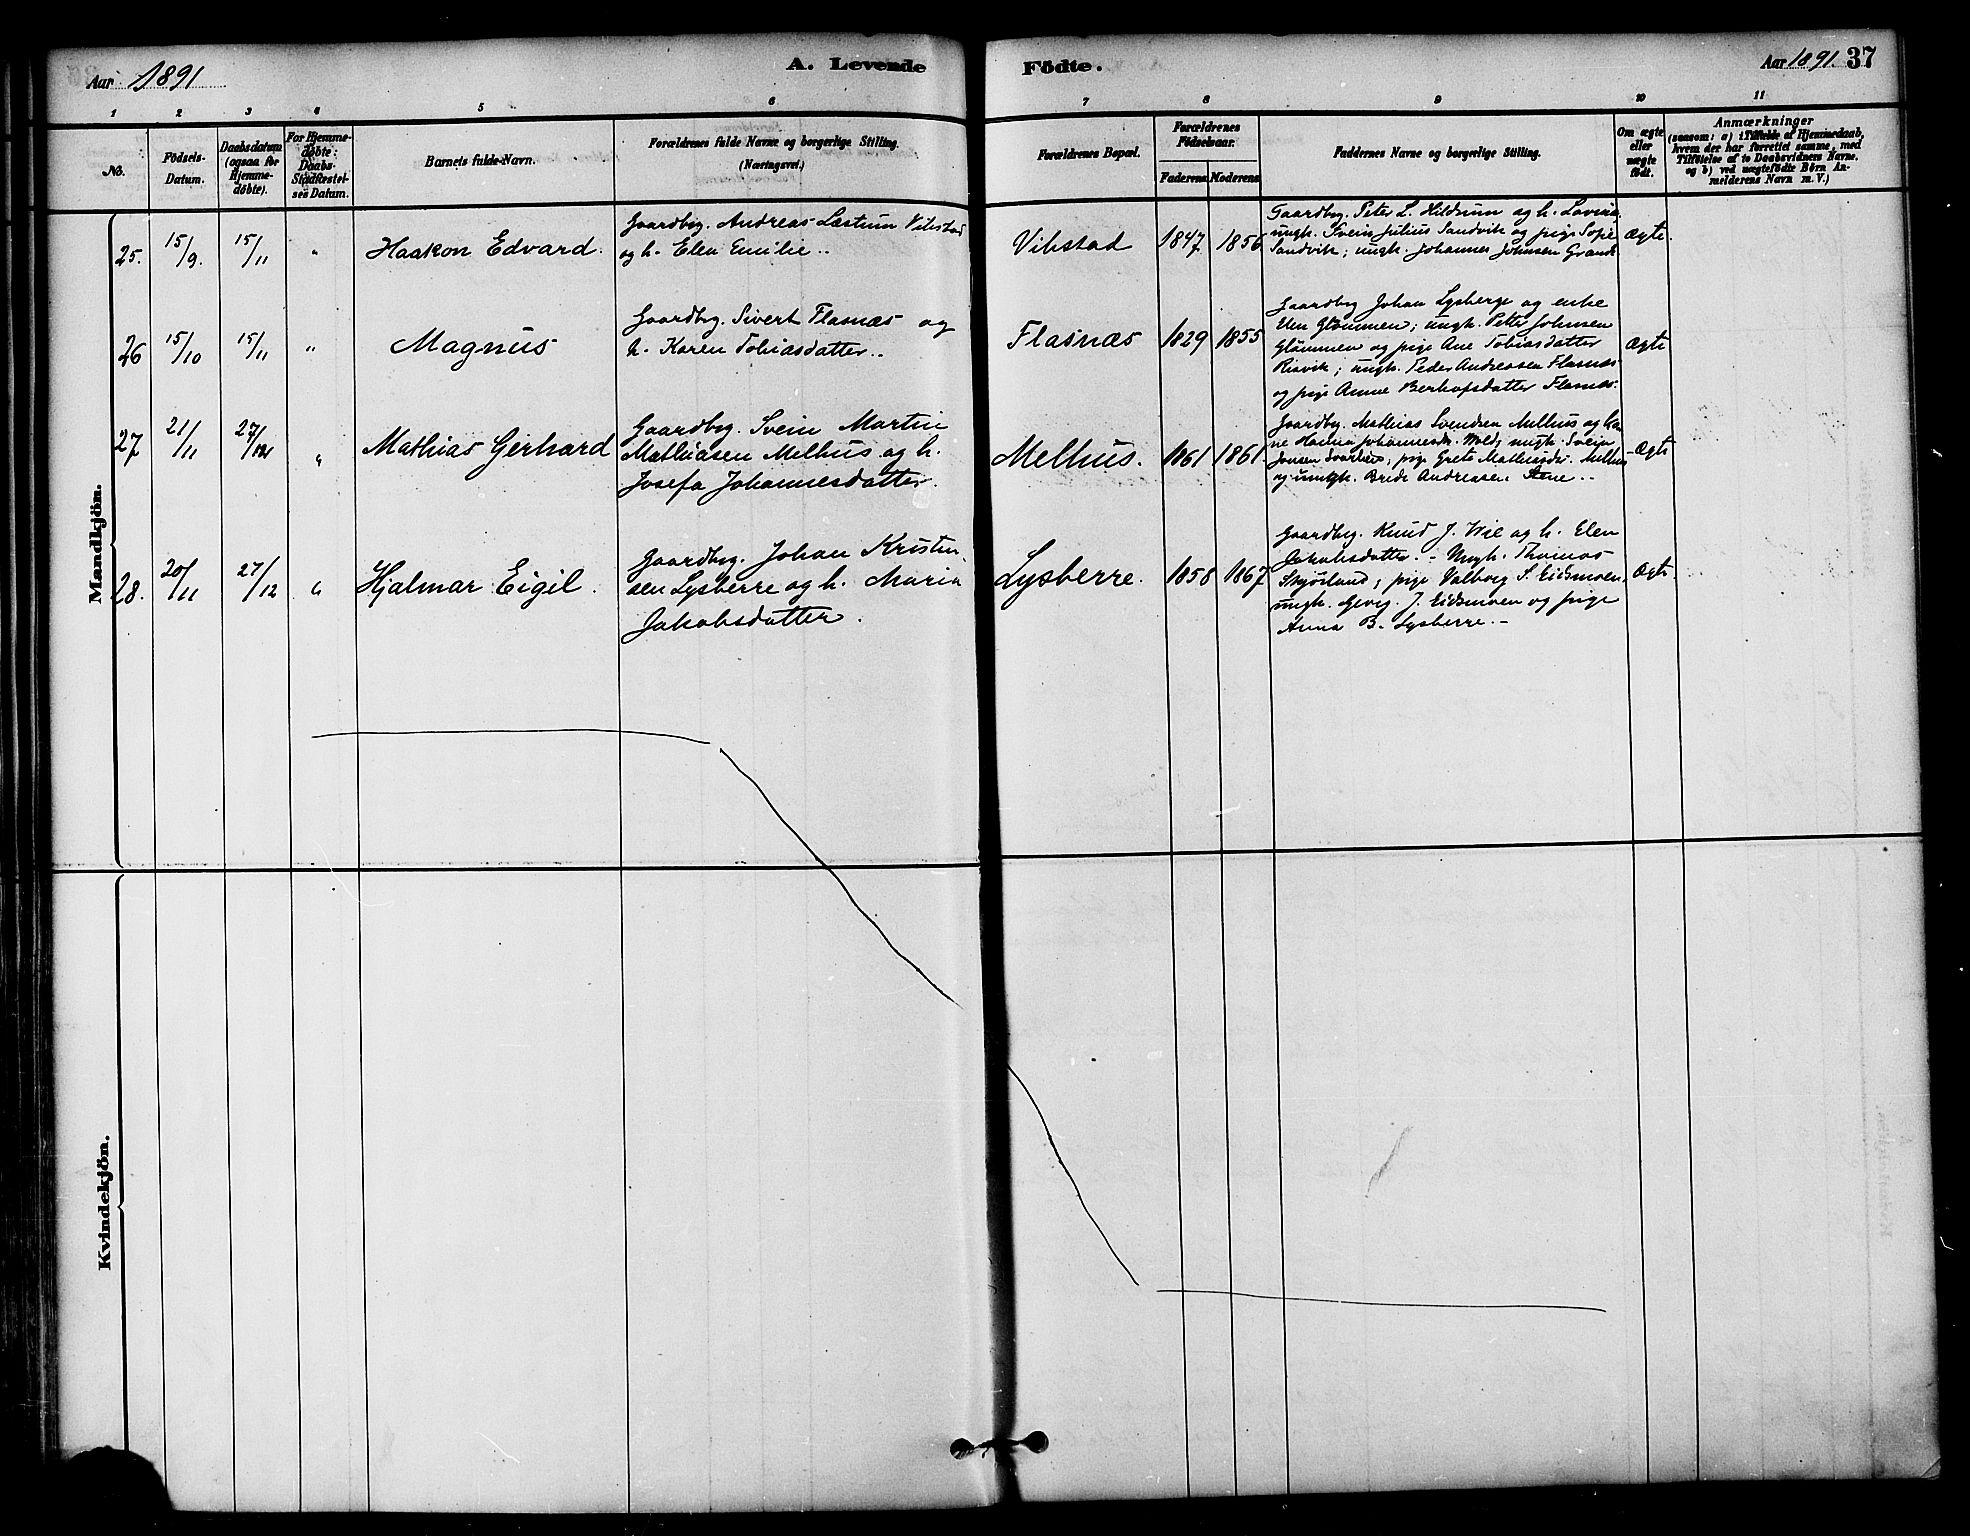 Aar 1891
A. Levende
Födte.
Aar 1891.
37
1 2 3 4 5 6 7 8 9 10 11
No.
Födsels-
Datum.
Daabsdatum
(ogsaa for
Hjemme-
döbte).
For Hjemme-
döbte:
Daabs-
Stadfæstel-
ses Datum.
Barnets fulde Navn.
Forældrenes fulde Navne og borgerlige Stilling.
(Næringsvei.)
Forældrenes Bopæl.
Forældrenes
Födselsaar.
Faderens Moderens
Faddernes Navne og borgerlige Stilling.
Om ægte
eller
uægte
födt.
Anmærkninger
(saasom: a) i Tilfælde af Hjemmedaab,
hvem der har forrettet samme, med
Tilföielse af to Daabsvidners Navne,
og b) ved uægtefödte Börn An-
melderens Navn m. V.)
Mandkjön.
25. 15/9. 15/11 " Haakon Edvard.
Gaardbrg. Andreas Læstum Vibstad
og h. Elen Emilie ..
Vibstad 1847 1856
Gaardbr. Peter L. Hildrum og h. Lovina
ungk. Svein Julius Sandvik og pige Sofie
Sandvik; ungk. Johannes Johnsen Grande
Ægte.
26 15/10 15/11 " Magnus
Gaardbrg. Sivert Flasnæs og
h. Karen Tobiasdatter..
Flasnæs 1829 1855
Gaardbrg Johan Lysberge og enke
Elen Glömmen; ungk. Petter Johnsen
Glömmen og pige Ane Tobiasdatter
Risvik; ungk. Peder Andreasen Flasnæs
og pige Anne Flasnæs.
Ægte
27 21/11 27/12 " Mathias Gerhard
Gaardbrg. Svein Martin
Mathiasen Melhus og h.
Josefa Johannesdatter.
Melhus. 1861 1861.
Gaardbrg. Mathias Svendsen Melhus og
Hanna Johannesdr. ungk. Svein
Jonsen pige Grete Mathiasdr. Melhus
og ungk. Brede Andreasen Stene..
Ægte
28. 20/11 27/12 " Hjalmar Eigil.
Gaardbrg. Johan Kristin-
sen Lysberre og h. Maria
Jakobsdatter.
Lysberre. 1858 1867
Gaardbrg. Knud J. Wie og h. Elen
Jakobsdatter. - Ungk. Thomas
Skjörland; pige Valborg S. Eidsmoen,
ungk. Georg J. Eidsmoen og pige
Anna B. Lysberre.-
Ægte
Kvindekjön.